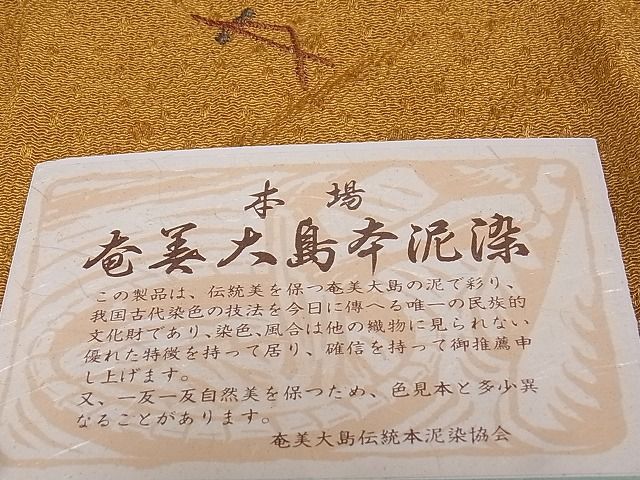 本場
奄美大島本泥染
この製品は、伝統美を保つ奄美大島の泥で彩り、
我国古代染色の技法を今日に傳へる唯一の民族的
文化財であり、染色、風合は他の織物に見られない
優れた特徴を持って居り、確信を持って御推薦申
し上げます。
又、一友一友自然美を保つため、色見本と多少異
なることがあります。
奄美大島伝統本泥染協会